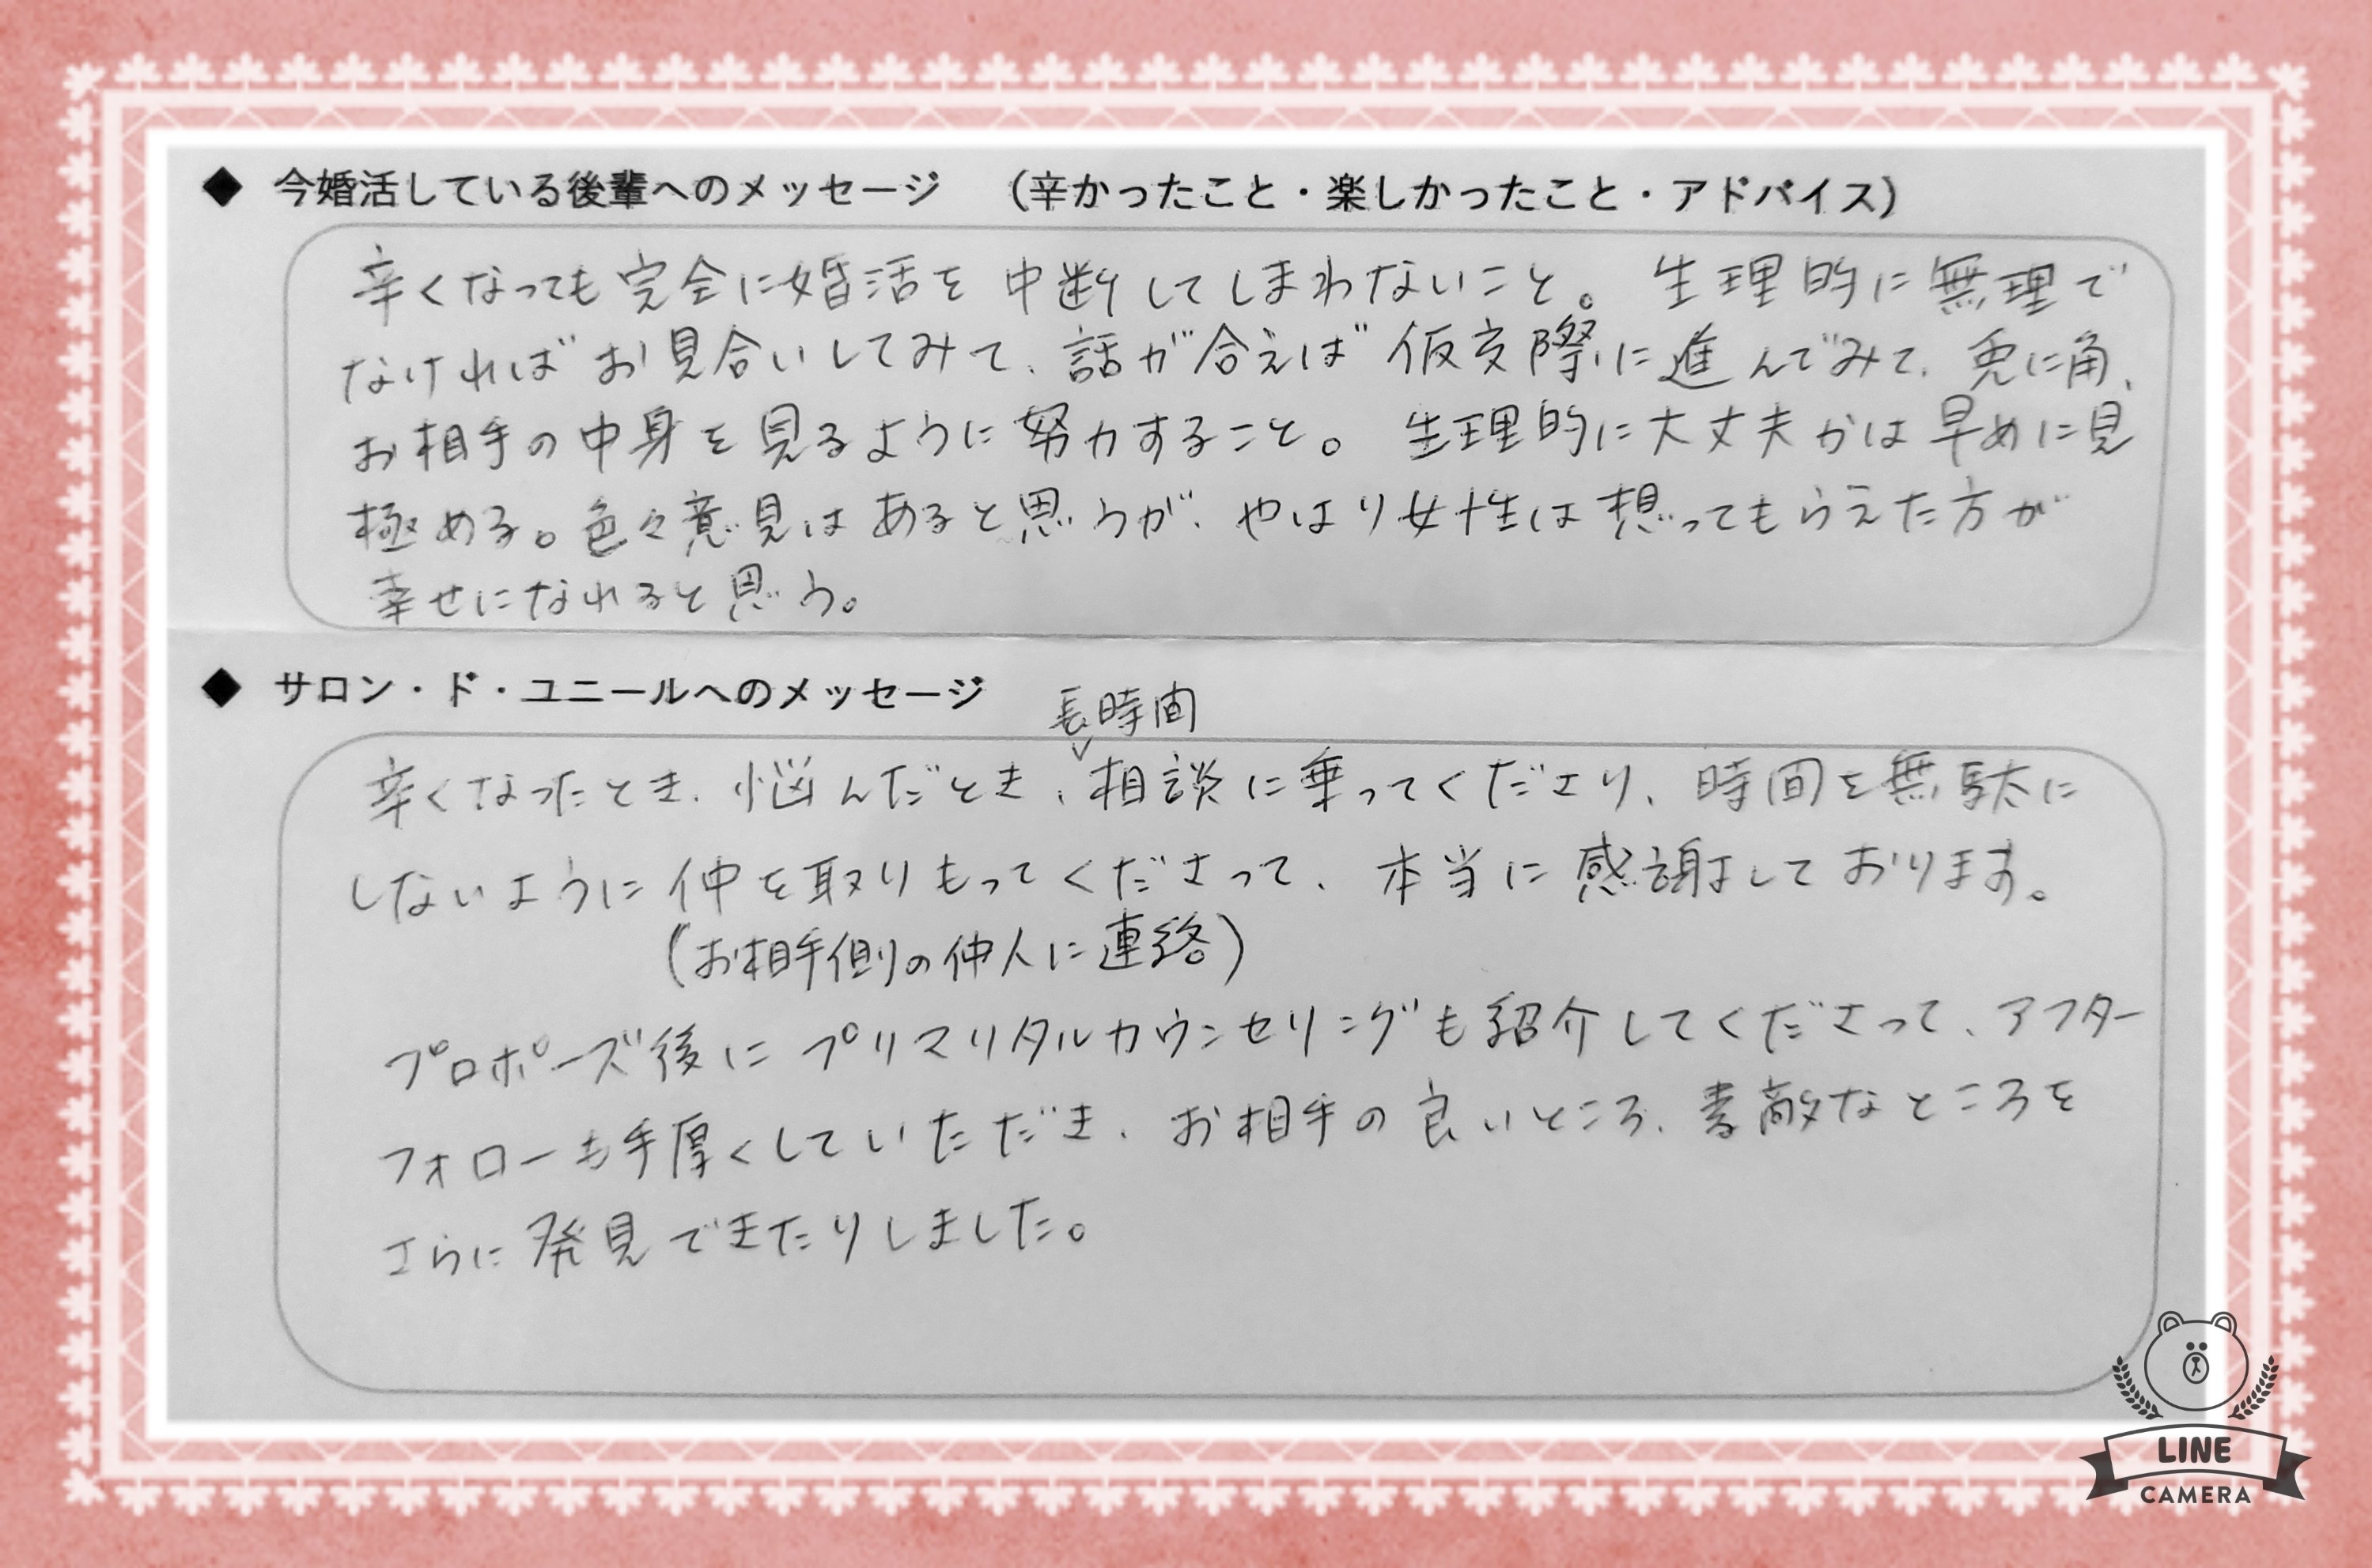 ◆ 今婚活している後輩へのメッセージ （辛かったこと・楽しかったこと・アドバイス）
辛くなっても完全に婚活を中断してしまわないこと。生理的に無理で
なければお見合いしてみて、話が合えば仮交際に進んでみて、兎に角、
お相手の中身を見るように努力すること。生理的に大丈夫かは早めに見
極める。色々意見はあると思うが、やはり女性は想ってもらえた方が
幸せになれると思う。
◆ サロン・ド・ユニールへのメッセージ
長時間
辛くなったとき、悩んだとき、相談に乗ってくださり、時間を無駄に
しないように仲を取りもってくださって、本当に感謝しております。
（お相手側の仲人に連絡）
プロポーズ後にプリマリタルカウンセリングも紹介してくださって、アフター
フォローも手厚くしていただき、お相手の良いところ、素敵なところを
さらに発見できたりしました。
LINE
CAMERA